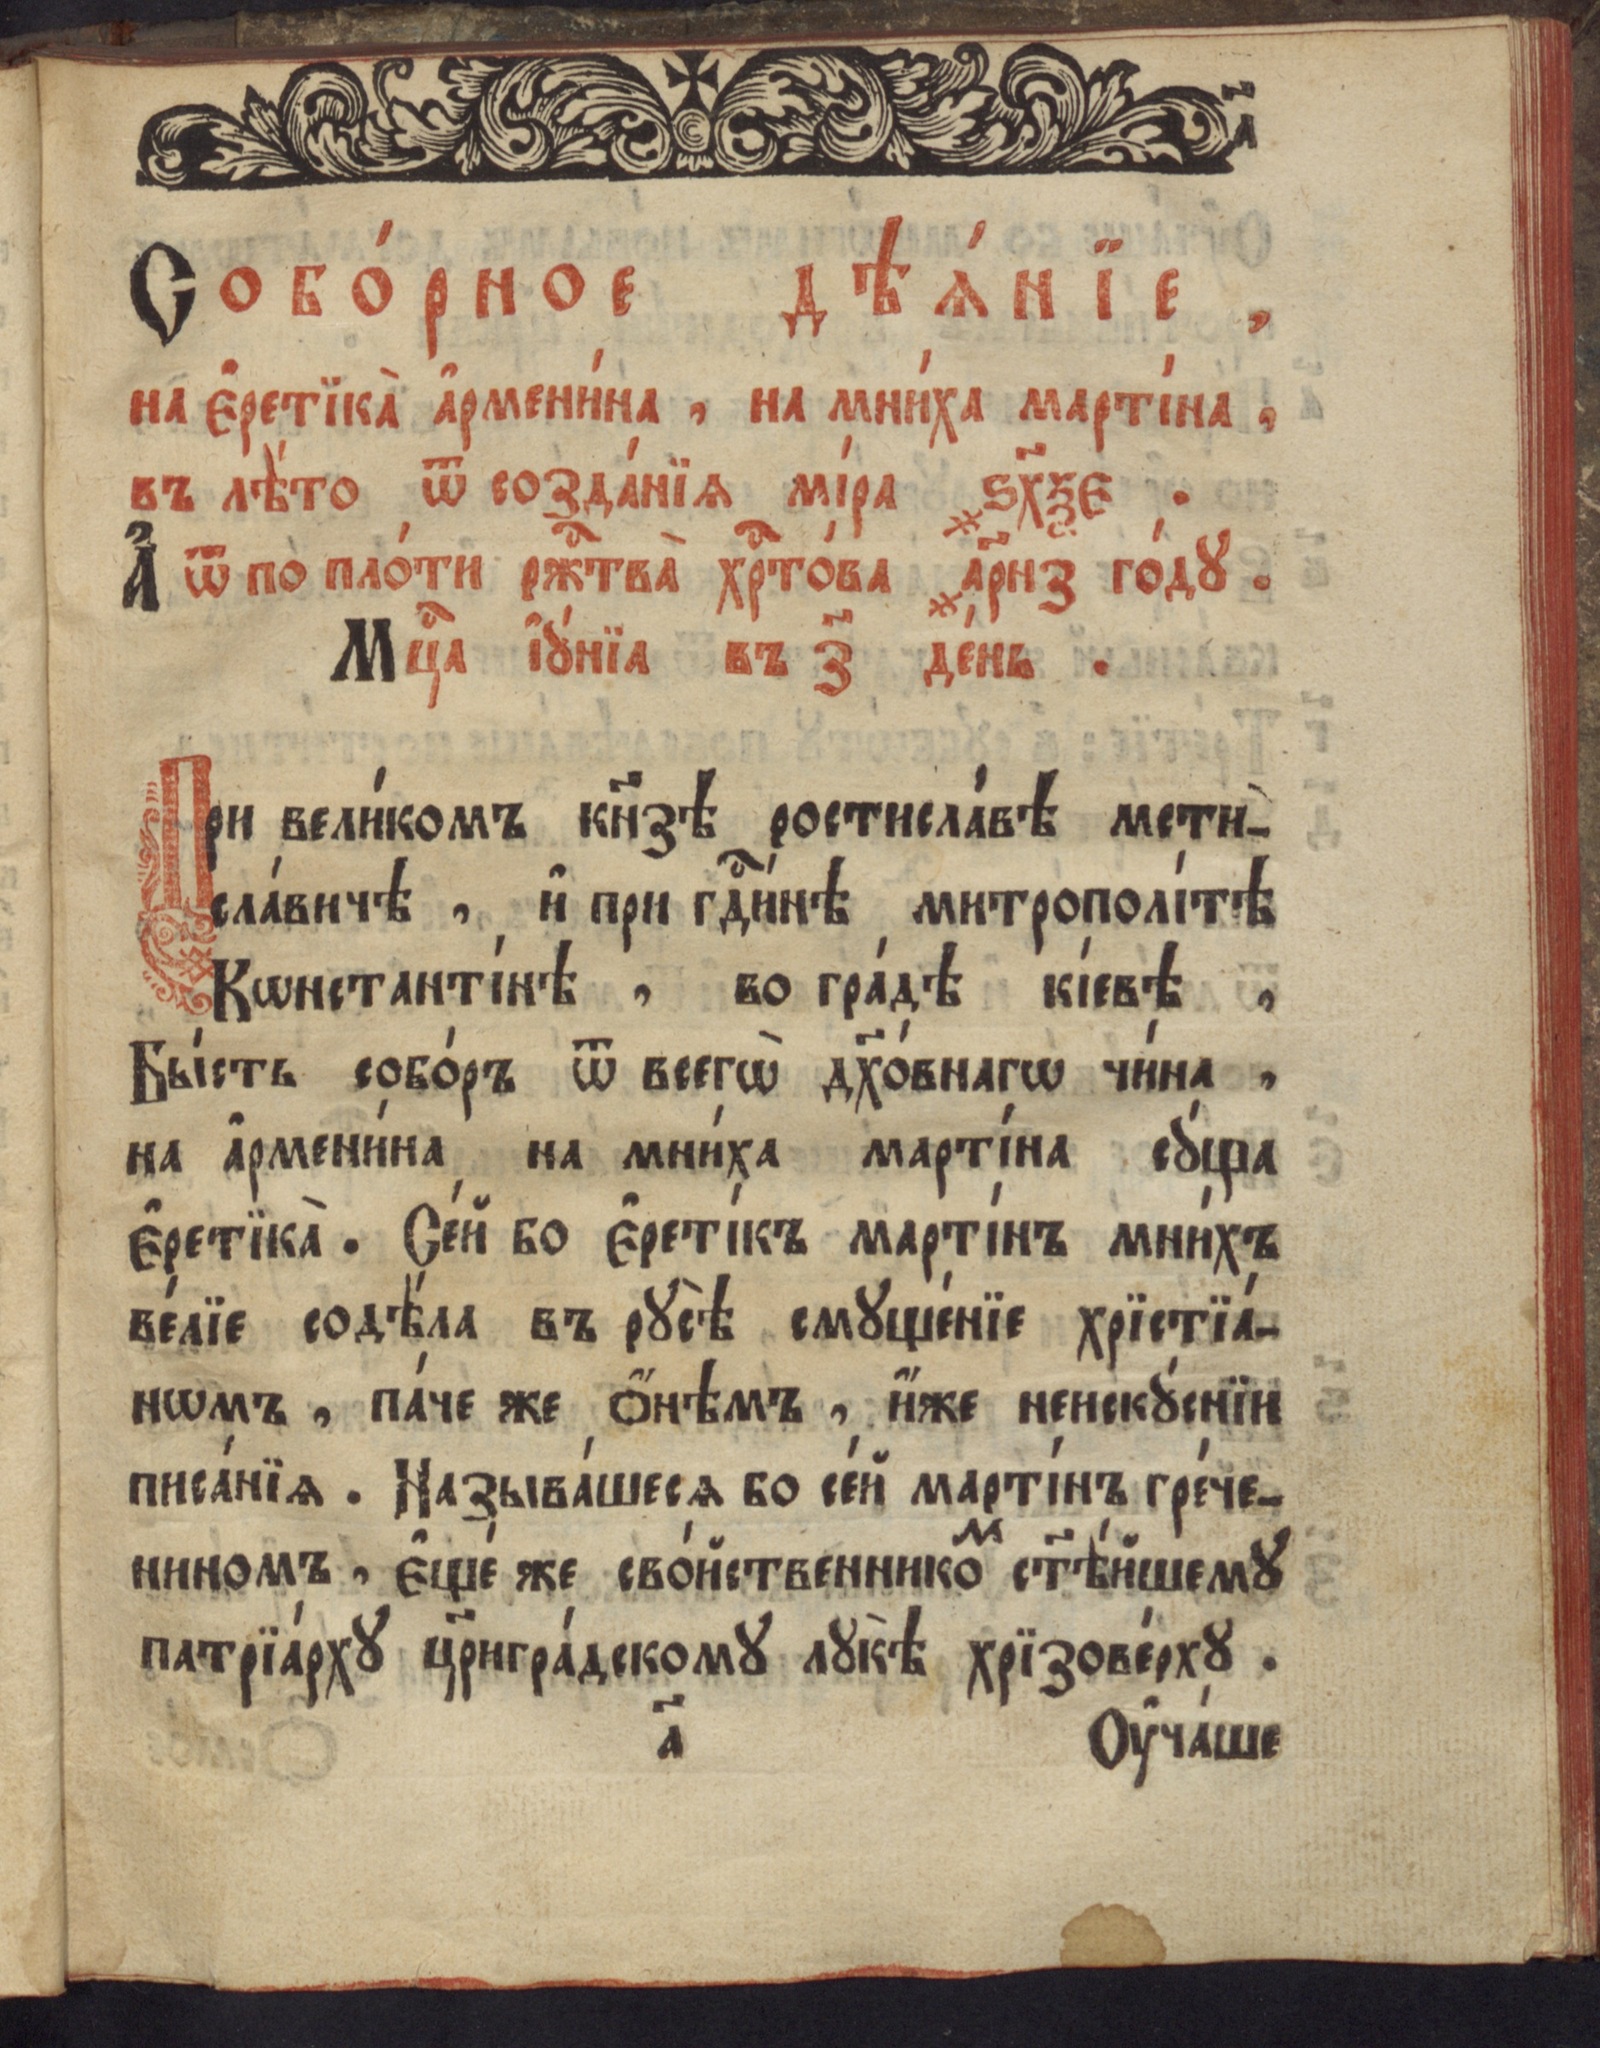 а҃
Собо́рное дѣѧ́нїе,
на є̑ретїка̀ а̑рмени́на, на мни́ха марті́на,
въ лѣ́то ѿ созда́нїѧ мі́ра ҂ѕ҃хѯе .
А҆ ѿ по пло́ти рж҇тва̀ хр҇то́ва ҂а҃рнз го́дꙋ.
Мц҇а і̑ꙋ́нїа въ з҃ де́нь .
При вели́комъ кн҃зѣ ростисла́вѣ мсти-
сла́вичѣ, и̑ при гд҇и́нѣ митрополі́тѣ
Кѡнстанті́нѣ, во гра́дѣ кі́евѣ,
Бы́сть собо́ръ ѿ всегѡ̀ дх҃о́внагѡ чи́на,
на а̑рмени́на на мни́ха марті́на сꙋ́ща
є̑ретїка̀. Се́й бо є̑реті́къ марті́нъ мни́хъ
ве́лїе содѣ́ла въ рꙋ́сѣ смꙋще́нїе хрїстїа́-
нѡмъ, па́че же ѻ҆́нѣмъ, и҆́же неискꙋ́снїи
писа́нїѧ. Называ́шесѧ бо се́й марті́нъ гре́че-
ниномъ, є̑ще́ же сво́йственникоⷨ ст҃ѣ́йшемꙋ
патрїа́рхꙋ цр҃игра́дскомꙋ лꙋкѣ̀ хрїзове́рхꙋ.
а҃ Оу̑ча́ше